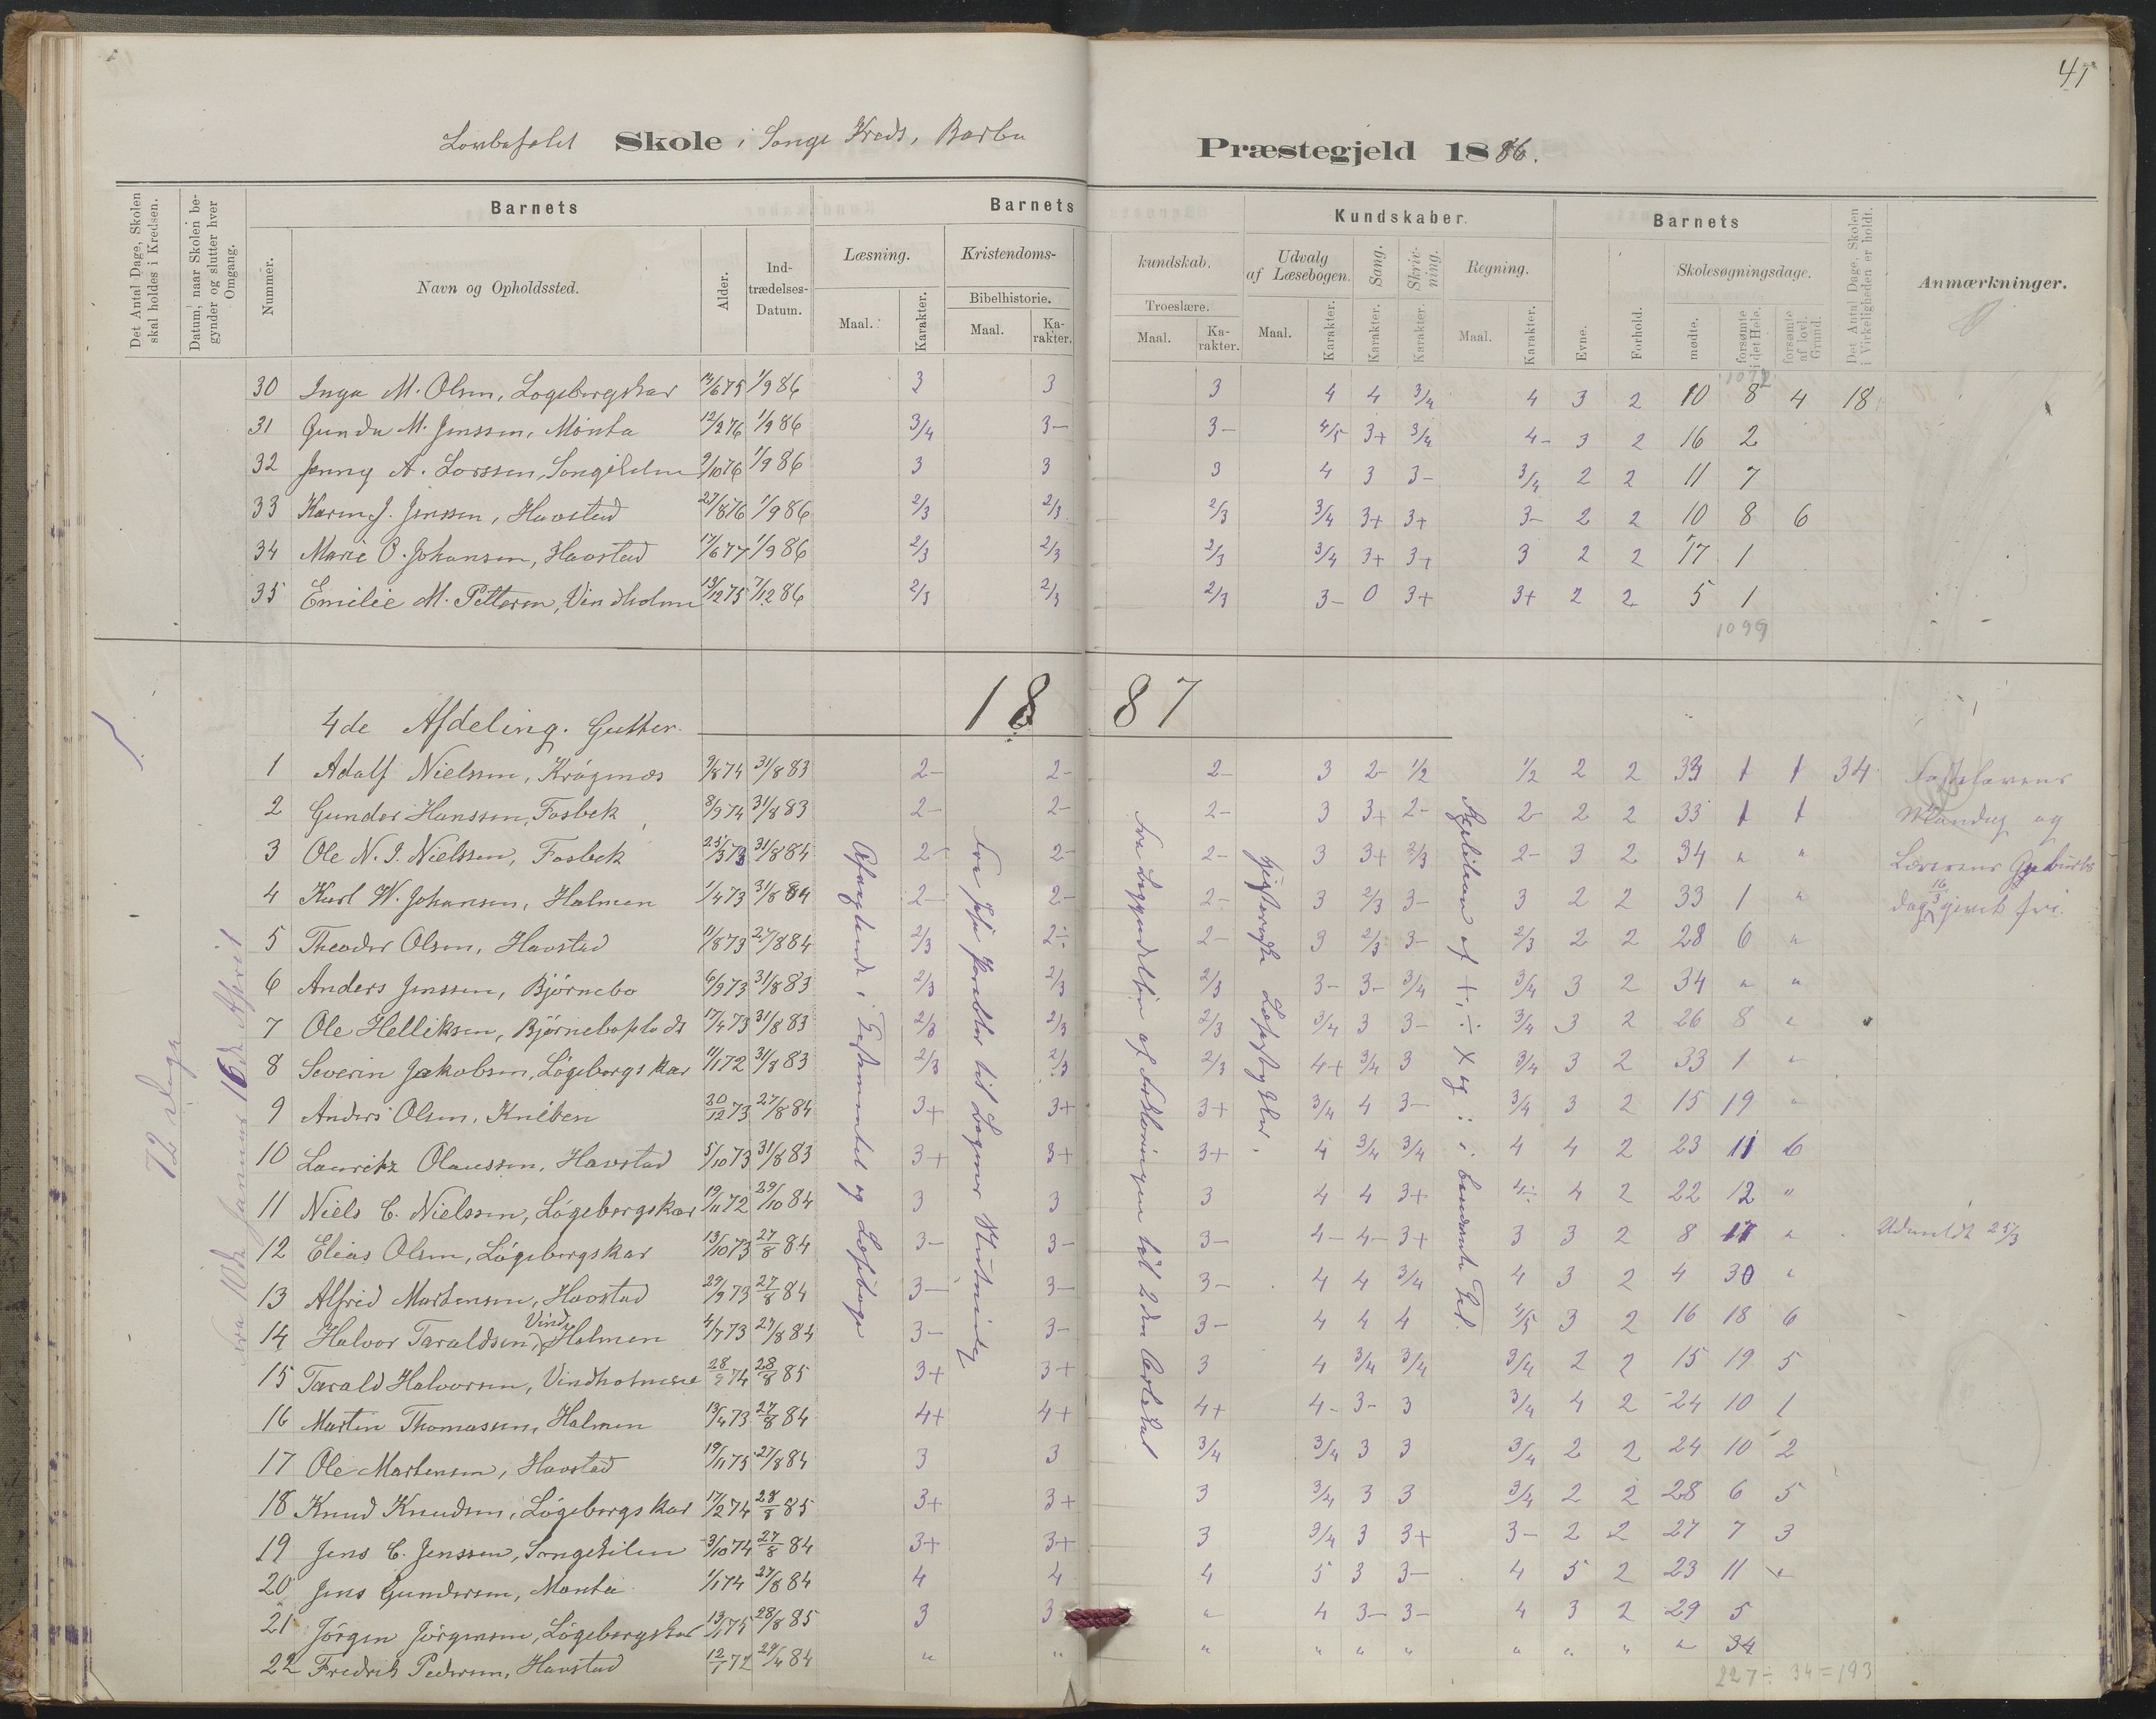 41
Skole i Songe Kreds, Barbu Præstegjeld 1886.
Det Antal Dage, Skolen skal holdes i Kredsen.
Datum, naar Skolen begynder og slutter hver Omgang.
Barnets
Nummer.
Navn og Opholdssted.
Alder.
Indtrædelses-Datum.
Barnets Kundskaber.
Læsning.
Maal.
Karakter.
Kristendomskundskab.
Bibelhistorie.
Maal.
Karakter.
Troeslære.
Maal.
Karakter.
Udvalg af Læsebogen.
Maal.
Karakter.
Sang.
Karakter.
Skrivning.
Karakter.
Regning.
Maal.
Karakter.
Barnets
Evne.
Forhold.
Skolesøgningsdage.
mødte.
forsømte i det Hele.
forsømte af lovl. Grund.
Det Antal Dage, Skolen i Virkeligheden er holdt.
Anmærkninger.
30 Inga M. Olsen, Løgebergskar 1/9 86 3 3 3 4 4 3/4 4 3 2 10 8 4 18
31 Gunda M. Jenssen, Monta 12/2 76 1/9 86 3/4 3- 3- 4/5 3+ 3/4 4- 3 2 16 2
32 Jenny A. Larssen, Songekilen 9/10 76 1/9 86 3 3 3 4 3 3- 3/4 2 2 11 7
33 Karen J. Jenssen, Havstad 27/8 76 1/9 86 2/3 2/3 2/3 3/4 3+ 3+ 3- 2 2 10 8 6
34 Marie O. Johansen, Havstad 17/6 77 1/9 86 2/3 2/3 2/3 3/4 3+ 3+ 3 2 2 17 1
35 Emilie M. Pettersen, Vindholmen 13/12 75 7/12 86 2/3 2/3 2/3 3- 0 3+ 3+ 2 2 5 1
1099
1887
4de Afdeling. Gutter.
72 Dage
Fra 10de Januar 16de April
1 Adolf Nielsen, Krøgenæs 9/8 74 31/8 83 2- 2- 2- 3 2- 1/2 1/2 2 2 33 1 1 34 Fastelavens
2 Gunder Hanssen, Fosbek 8/9 74 31/8 83 2- 2- 2- 3 3+ 2- 2- 2 2 33 1 1 Mandag og
3 Ole N. J. Nielssen, Fosbek 25/3 73 31/8 84 2- 2- 2- 3 3+ 2/3 2- 3 2 34 " " Lærerens Geburts
4 Karl W. Johansen, Holmen 1/4 73 31/8 84 2- 2- 2- 3 2/3 3- 3 2 2 33 1 " dag 16/3 givet fri.
5 Theodor Olsen, Havstad 11/8 73 27/8 84 2/3 2÷ 2- 3 2/3 3- 2/3 2 2 28 6 "
6 Anders Jenssen, Bjørnebo 6/9 73 31/8 83 2/3 2/3 2/3 3- 3- 3/4 3/4 3 2 34 " "
7 Ole Helliksen, Bjørneboplads 17/4 73 31/8 83 2/3 2/3 2/3 3/4 3 3- 3/4 3 2 26 8 "
8 Severin Jakobsen, Løgebergskar 11/1 72 31/8 83 2/3 2/3 2/3 4+ 3/4 3 3/4 3 2 33 1 "
9 Anders Olsen, Kniben 30/12 73 27/8 84 3+ 3+ 3+ 3/4 4 3- 3/4 3 2 15 19 "
10 Lauritz Olaussen, Havstad 5/10 73 31/8 83 3+ 3+ 3+ 4 3/4 3/4 4 4 2 23 11 6
11 Niels C. Nielssen, Løgebergskar 19/11 72 29/10 84 3 3 3 4 4 3+ 4÷ 4 2 22 12 "
12 Elias Olsen, Løgebergskar 13/10 73 27/8 84 3- 3- 3- 4- 4- 3+ 3 3 2 8 17 " Udmeldt 25/3
13 Alfred Mortensen, Havstad 29/9 73 27/8 84 3- 3- 3- 4 4 3/4 4 3 2 4 30 "
14 Halvor Taraldsen, Vindholmen 4/7 73 27/8 84 3- 3- 3- 4 4 4 4/5 3 2 16 18 6
15 Tarald Halvorsen, Vindholmen 28/9 74 28/8 85 3+ 3+ 3 4 3/4 3/4 3/4 2 2 15 19 5
16 Martin Thomassen, Holmen 13/4 73 27/8 84 4+ 4+ 4+ 4- 3- 3 3/4 4 2 24 10 1
17 Ole Mortensen, Havstad 19/11 75 27/8 84 3 3 3/4 3/4 3 3 3/4 2 2 24 10 2
18 Knud Knudsen, Løgebergskar 17/2 74 28/8 85 3+ 3+ 3 3/4 3 3 3/4 2 2 28 6 5
19 Jens C. Jenssen, Songekilen 3/10 74 27/8 84 3+ 3+ 3 3/4 3 3+ 3- 2 2 27 7 3
20 Jens Gundersen, Monta 1/1 74 27/8 84 4 4 4 5 3 3- 4 5 2 23 11
21 Jørgen Jørgensen, Løgebergskar 13/1 75 28/8 85 3 3 " 4 3- 3- 4 3 2 29 5
22 Fredrik Pedersen, Havstad 12/1 72 29/4 84 " " " " " " " " " " 34
227 ÷ 34 = 193
i Testamentet og Læsebogen
til Lægmes Slutning
Fra Begyndelsen af Forklaringen til 2den Artikel
Repetition af +, ÷, × og : i benævnte Tal.